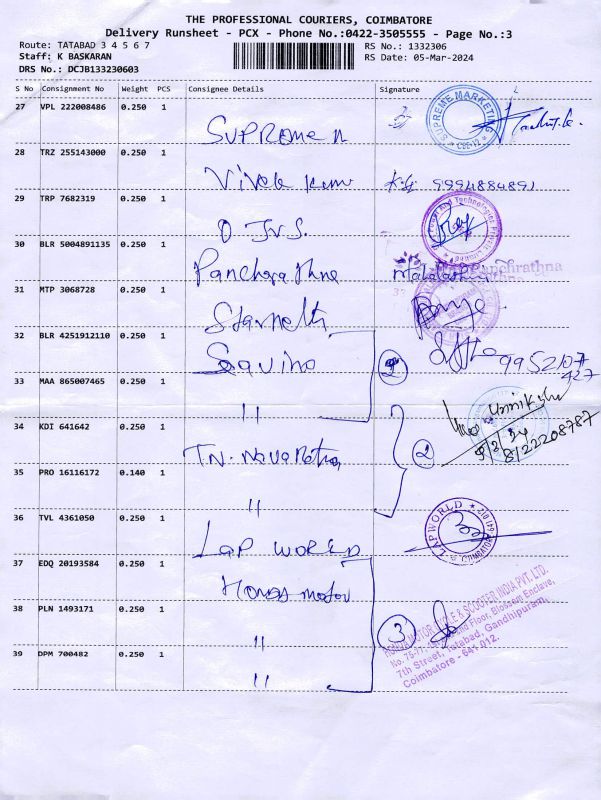 THE PROFESSIONAL COURIERS, COIMBATORE
Delivery Runsheet - PCX - Phone No.:0422-3505555 - Page No.:3
Route: TATABAD 3 4 5 6 7 RS No.: 1332306
Staff: K BASKARAN RS Date: 05-Mar-2024
DRS No.: DCJB133230603
S No Consignment No Weight PCS Consignee Details Signature
27 VPL 222008486 0.250 1
SUPREME MARKETING
CBE-12
28 TRZ 255143000 0.250 1
Vivek kum 9994884891
29 TRP 7682319 0.250 1
30 BLR 5004891135 0.250 1
Panchrathna
31 MTP 3068728 0.250 1
32 BLR 4251912110 0.250 1
Savino 2 9952107
427
33 MAA 865007465 0.250 1
"
34 KDI 641642 0.250 1
TN. Navaratna 2 8122208787
35 PRO 16116172 0.140 1
"
36 TVL 4361050 0.250 1
LAP WORLD
LAPWORLD
COIMBATORE 641 012
37 EDQ 20193584 0.250 1
Honda motor
38 PLN 1493171 0.250 1
" 3
39 DPM 700482 0.250 1
"
MOTOR CYCLE & SCOOTER INDIA PVT. LTD.
Floor, Blossom Enclave,
7th Street, Tatabad, Gandhipuram,
Coimbatore - 641 012.